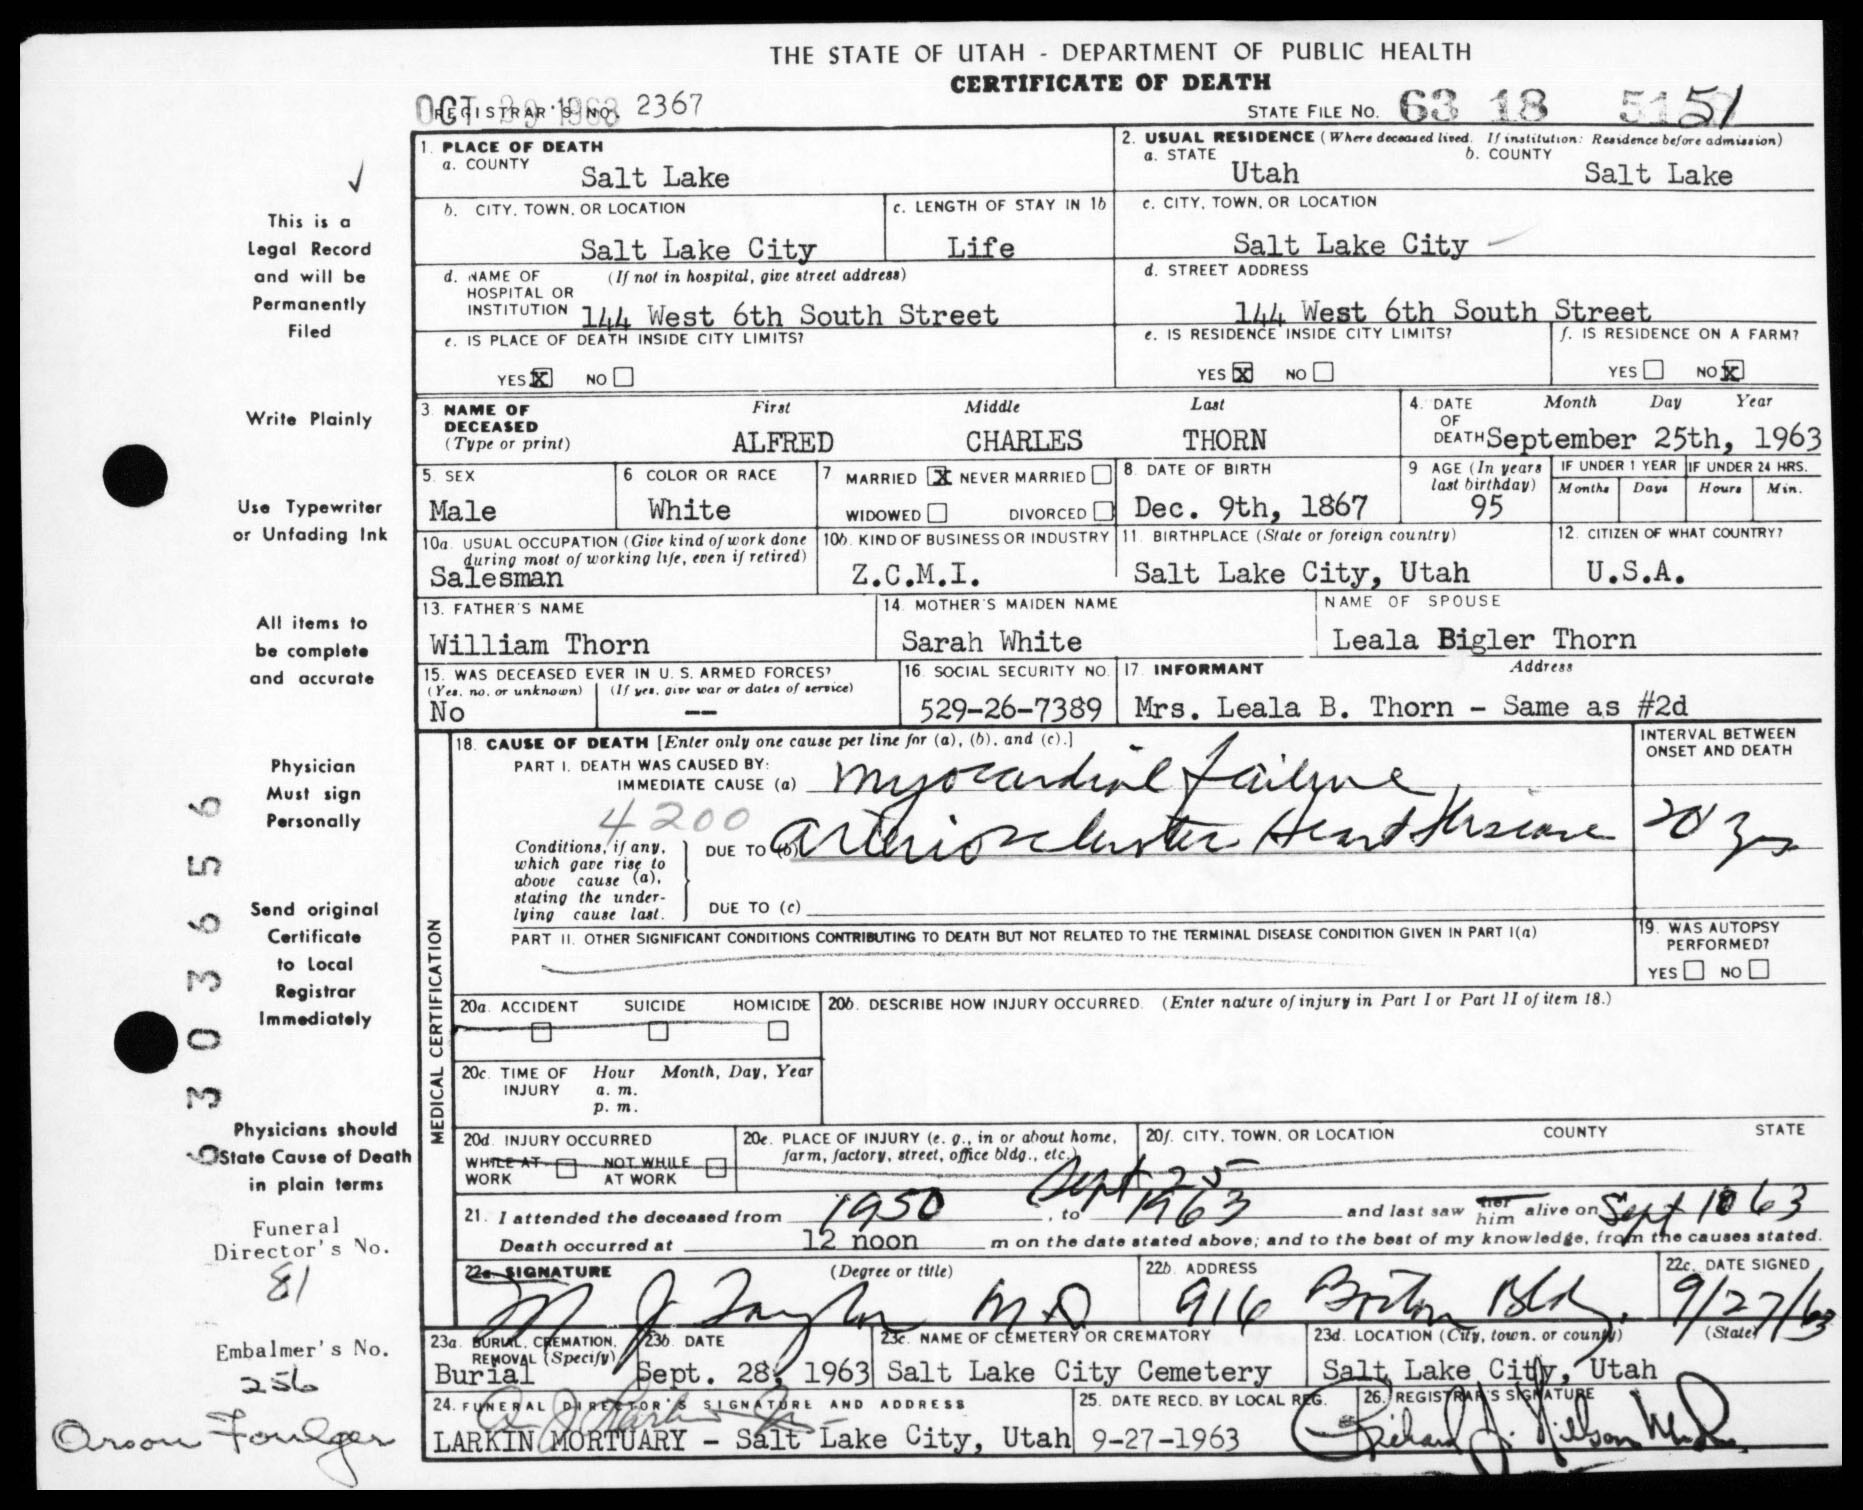 THE STATE OF UTAH - DEPARTMENT OF PUBLIC HEALTH
CERTIFICATE OF DEATH
OCT 29 1963
REGISTRAR'S NO. 2367
STATE FILE NO. 63 18 5151
1. PLACE OF DEATH
a. COUNTY
Salt Lake
2. USUAL RESIDENCE (Where deceased lived. If institution: Residence before admission)
a. STATE
Utah
b. COUNTY
Salt Lake
b. CITY, TOWN, OR LOCATION
Salt Lake City
c. LENGTH OF STAY IN 1b
Life
c. CITY, TOWN, OR LOCATION
Salt Lake City
d. NAME OF HOSPITAL OR INSTITUTION (If not in hospital, give street address)
144 West 6th South Street
d. STREET ADDRESS
144 West 6th South Street
e. IS PLACE OF DEATH INSIDE CITY LIMITS?
YES X NO
e. IS RESIDENCE INSIDE CITY LIMITS?
YES X NO
f. IS RESIDENCE ON A FARM?
YES NO X
3. NAME OF DECEASED (Type or print)
First Middle Last
ALFRED CHARLES THORN
4. DATE OF DEATH Month Day Year
September 25th, 1963
5. SEX
Male
6 COLOR OR RACE
White
7 MARRIED X NEVER MARRIED
WIDOWED DIVORCED
8 DATE OF BIRTH
Dec. 9th, 1867
9 AGE (In years last birthday)
95
IF UNDER 1 YEAR
Months Days
IF UNDER 24 HRS.
Hours Min.
10a. USUAL OCCUPATION (Give kind of work done during most of working life, even if retired)
Salesman
10b. KIND OF BUSINESS OR INDUSTRY
Z.C.M.I.
11. BIRTHPLACE (State or foreign country)
Salt Lake City, Utah
12. CITIZEN OF WHAT COUNTRY?
U.S.A.
13. FATHER'S NAME
William Thorn
14. MOTHER'S MAIDEN NAME
Sarah White
NAME OF SPOUSE
Leala Bigler Thorn
15. WAS DECEASED EVER IN U. S. ARMED FORCES?
(Yes, no, or unknown) (If yes, give war or dates of service)
No --
16. SOCIAL SECURITY NO.
529-26-7389
17. INFORMANT Address
Mrs. Leala B. Thorn - Same as #2d
MEDICAL CERTIFICATION
18. CAUSE OF DEATH [Enter only one cause per line for (a), (b), and (c).]
PART I. DEATH WAS CAUSED BY:
IMMEDIATE CAUSE (a) Myocardial failure
INTERVAL BETWEEN ONSET AND DEATH
4200
Conditions, if any, which gave rise to above cause (a), stating the underlying cause last.
DUE TO (b) Arteriosclerotic Heart Disease
20 yrs
DUE TO (c)
PART II. OTHER SIGNIFICANT CONDITIONS CONTRIBUTING TO DEATH BUT NOT RELATED TO THE TERMINAL DISEASE CONDITION GIVEN IN PART I(a)
19. WAS AUTOPSY PERFORMED?
YES NO
20a. ACCIDENT SUICIDE HOMICIDE
20b. DESCRIBE HOW INJURY OCCURRED. (Enter nature of injury in Part I or Part II of item 18.)
20c. TIME OF INJURY Hour Month, Day, Year
a. m.
p. m.
20d. INJURY OCCURRED
WHILE AT WORK NOT WHILE AT WORK
20e. PLACE OF INJURY (e. g., in or about home, farm, factory, street, office bldg., etc.)
20f. CITY, TOWN, OR LOCATION COUNTY STATE
21. I attended the deceased from 1950, to Sept 25 1963 and last saw her him alive on Sept 10 63
Death occurred at 12 noon m on the date stated above; and to the best of my knowledge, from the causes stated.
22a. SIGNATURE (Degree or title)
M J Taylor M.D
22b. ADDRESS
916 Boston Bldg.
22c. DATE SIGNED
9/27/63
23a. BURIAL, CREMATION, REMOVAL (Specify)
Burial
23b. DATE
Sept. 28, 1963
23c. NAME OF CEMETERY OR CREMATORY
Salt Lake City Cemetery
23d. LOCATION (City, town, or county) (State)
Salt Lake City, Utah
24. FUNERAL DIRECTOR'S SIGNATURE AND ADDRESS
LARKIN MORTUARY - Salt Lake City, Utah
25. DATE RECD. BY LOCAL REG.
9-27-1963
26. REGISTRAR'S SIGNATURE
This is a
Legal Record
and will be
Permanently
Filed
Write Plainly
Use Typewriter
or Unfading Ink
All items to
be complete
and accurate
Physician
Must sign
Personally
Send original
Certificate
to Local
Registrar
Immediately
Physicians should
State Cause of Death
in plain terms
Funeral
Director's No.
81
Embalmer's No.
256
Orson Foulger